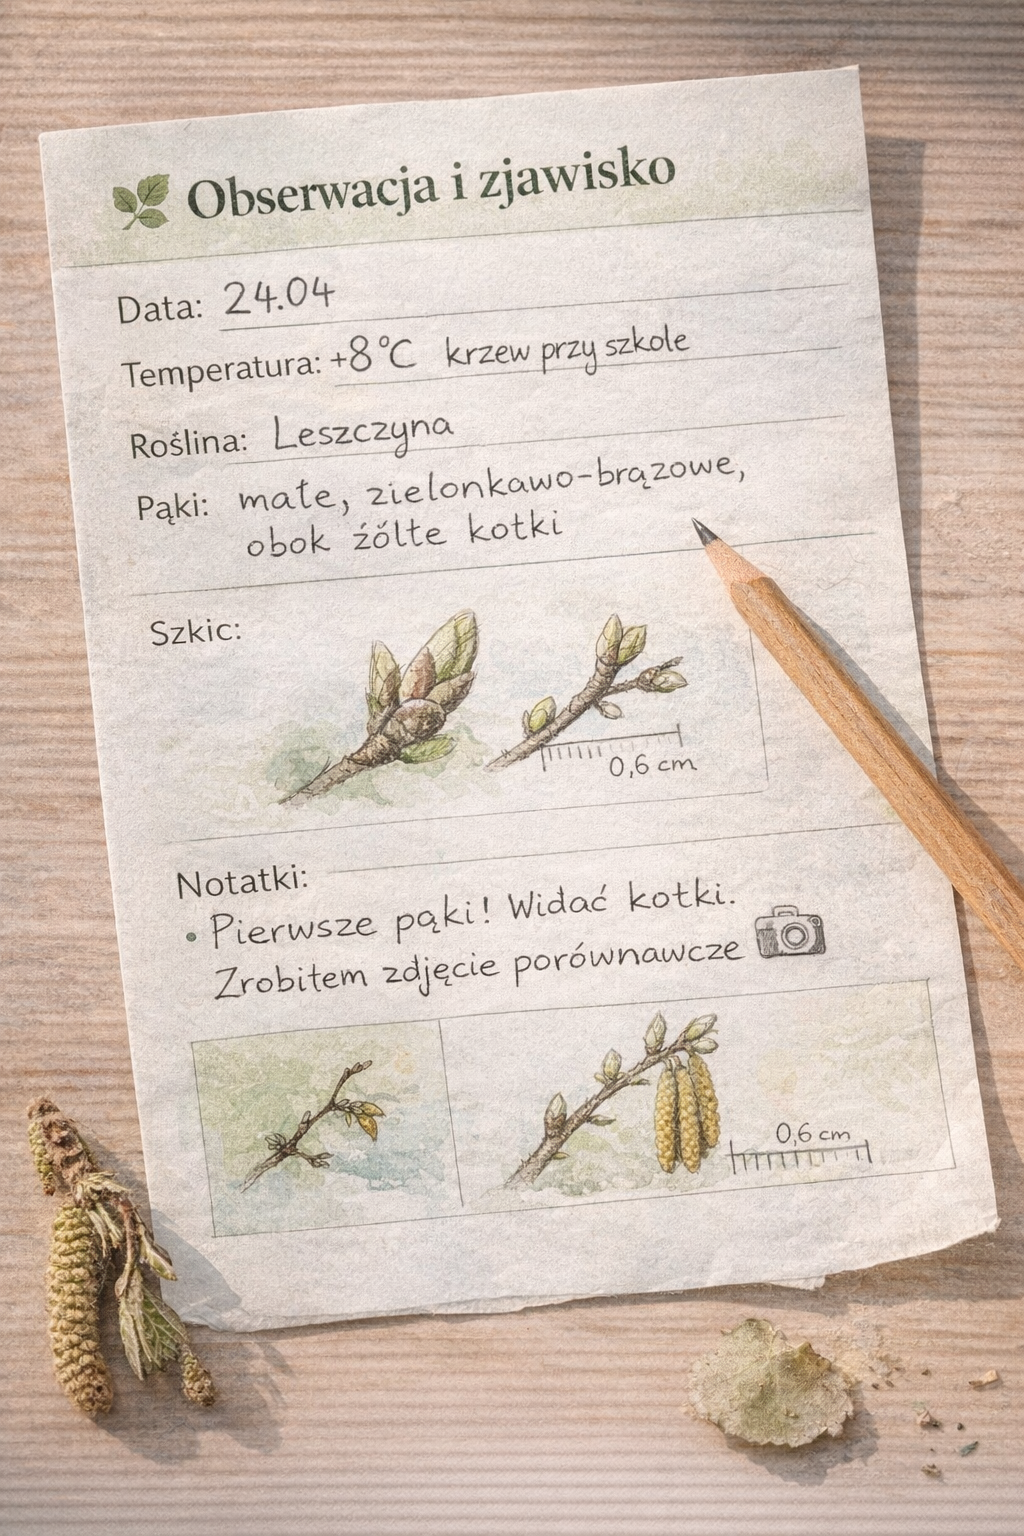 Obserwacja i zjawisko
Data: 24.04
Temperatura: +8°C krzew przy szkole
Roślina: Leszczyna
Pąki: małe, zielonkawo-brązowe,
obok źółte kotki
Szkic:
0,6 cm
Notatki:
• Pierwsze pąki! Widać kotki.
Zrobiłem zdjęcie porównawcze
0,6 cm